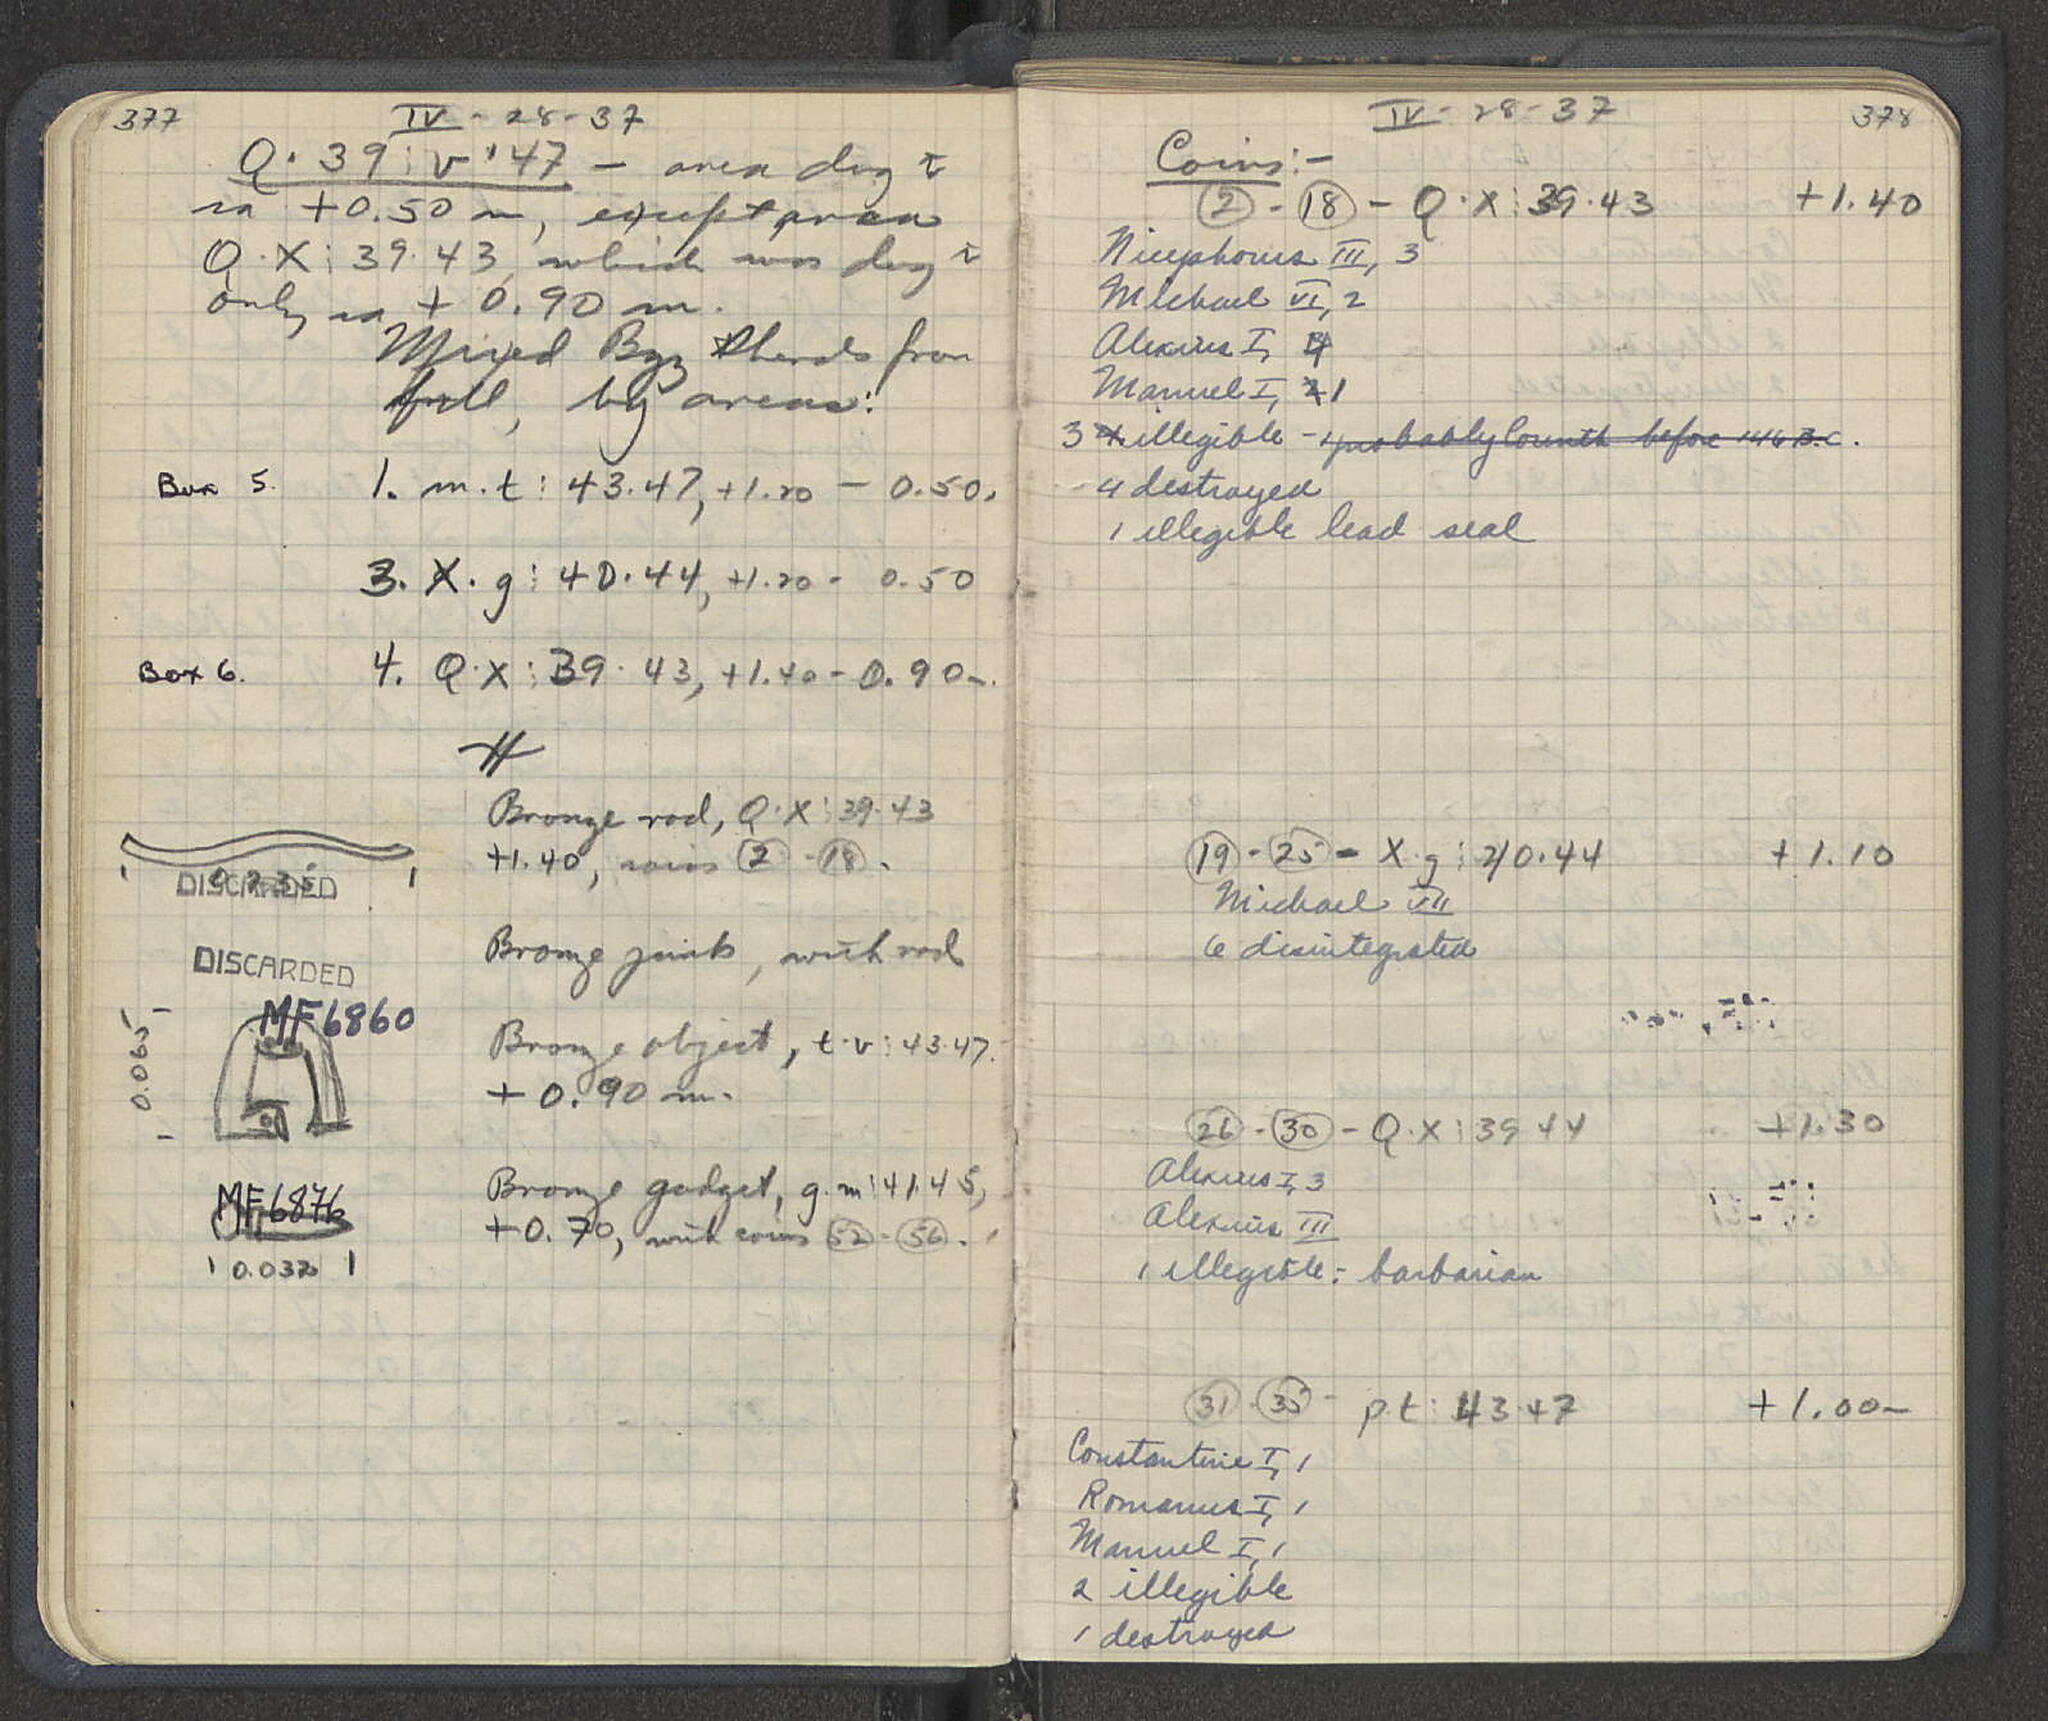 377
IV - 28 - 37
Q·39 : v·47 — area dug τ
ca +0.50 m, except area
Q·X : 39·43, which was dug τ
only ca + 0.90 m.
Mixed Byz sherds from
fill, by areas:
Box 5. 1. m.t : 43.47, +1.20 - 0.50.
3. X.g : 40.44, +1.20 - 0.50
Box 6. 4. Q·X : 39·43, +1.40 - 0.90 m.
Bronze rod, Q·X : 39·43
+1.40, coins (2) - (18).
0.235
DISCARDED
Bronze junk, with rod
DISCARDED
MF6860
0.065
Bronze object, t·v : 43·47.
+ 0.90 m.
MF6876
0.032
Bronze gadget, g.m : 41.45,
+0.70, with coins (52) - (56).
IV - 28 - 37
378
Coins:-
(2) - (18) - Q·X : 39·43 +1.40
Nicephorus III, 3
Michael VI, 2
Alexius I, 4
Manuel I, 1
3 illegible - probably Corinth before 146 B.C.
4 destroyed
1 illegible lead seal
(19) - (25) - X·g : 40.44 +1.10
Michael VII
6 disintegrated
(26) - (30) - Q·X : 39 44 +1.30
Alexius I, 3
Alexius III
1 illegible:- barbarian
(31) - (35) - p.t : 43 47 +1.00 m
Constantine I, 1
Romanus I, 1
Manuel I, 1
2 illegible
1 destroyed